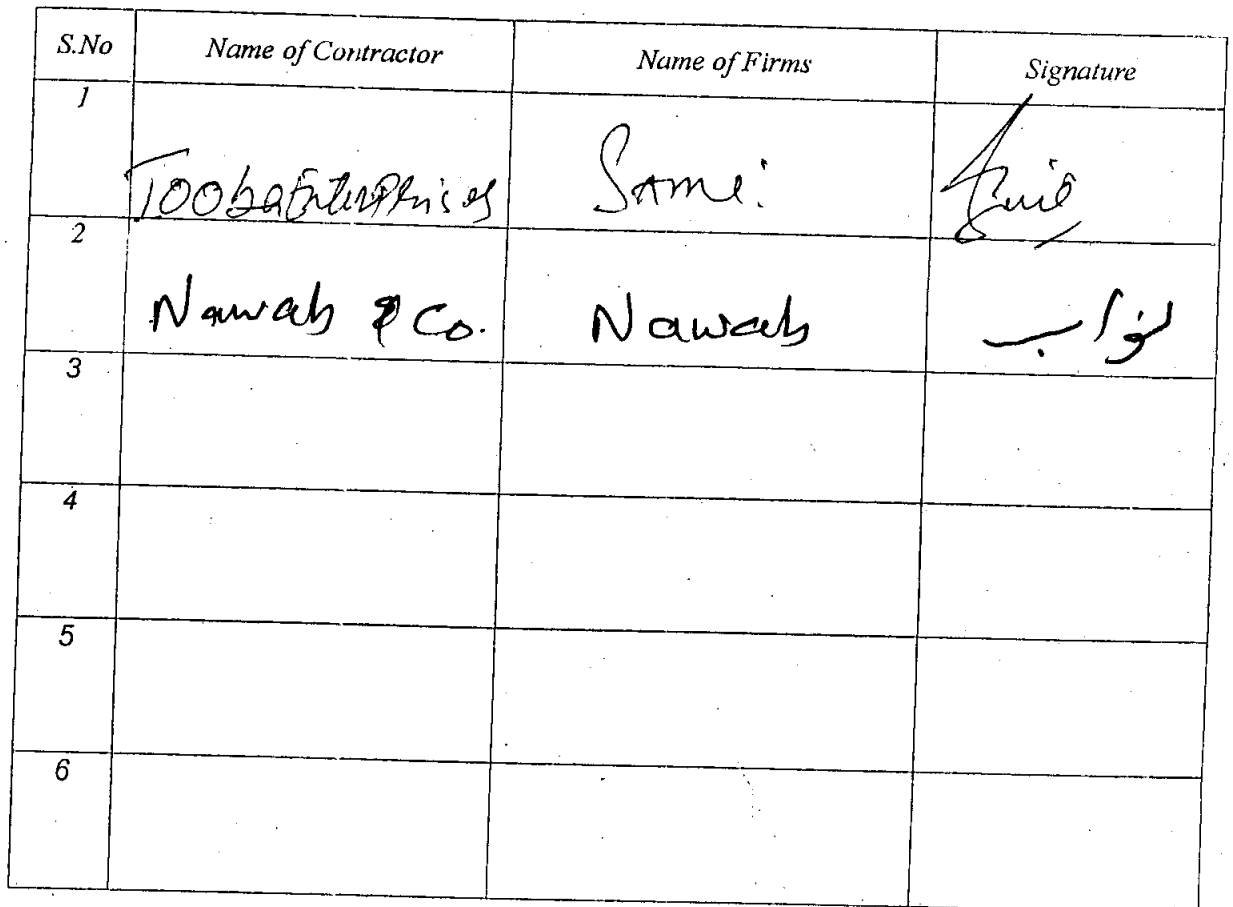 S.No Name of Contractor Name of Firms Signature
1
Tooba Enterprises Same
2
Nawab & Co. Nawab نواب
3
4
5
6